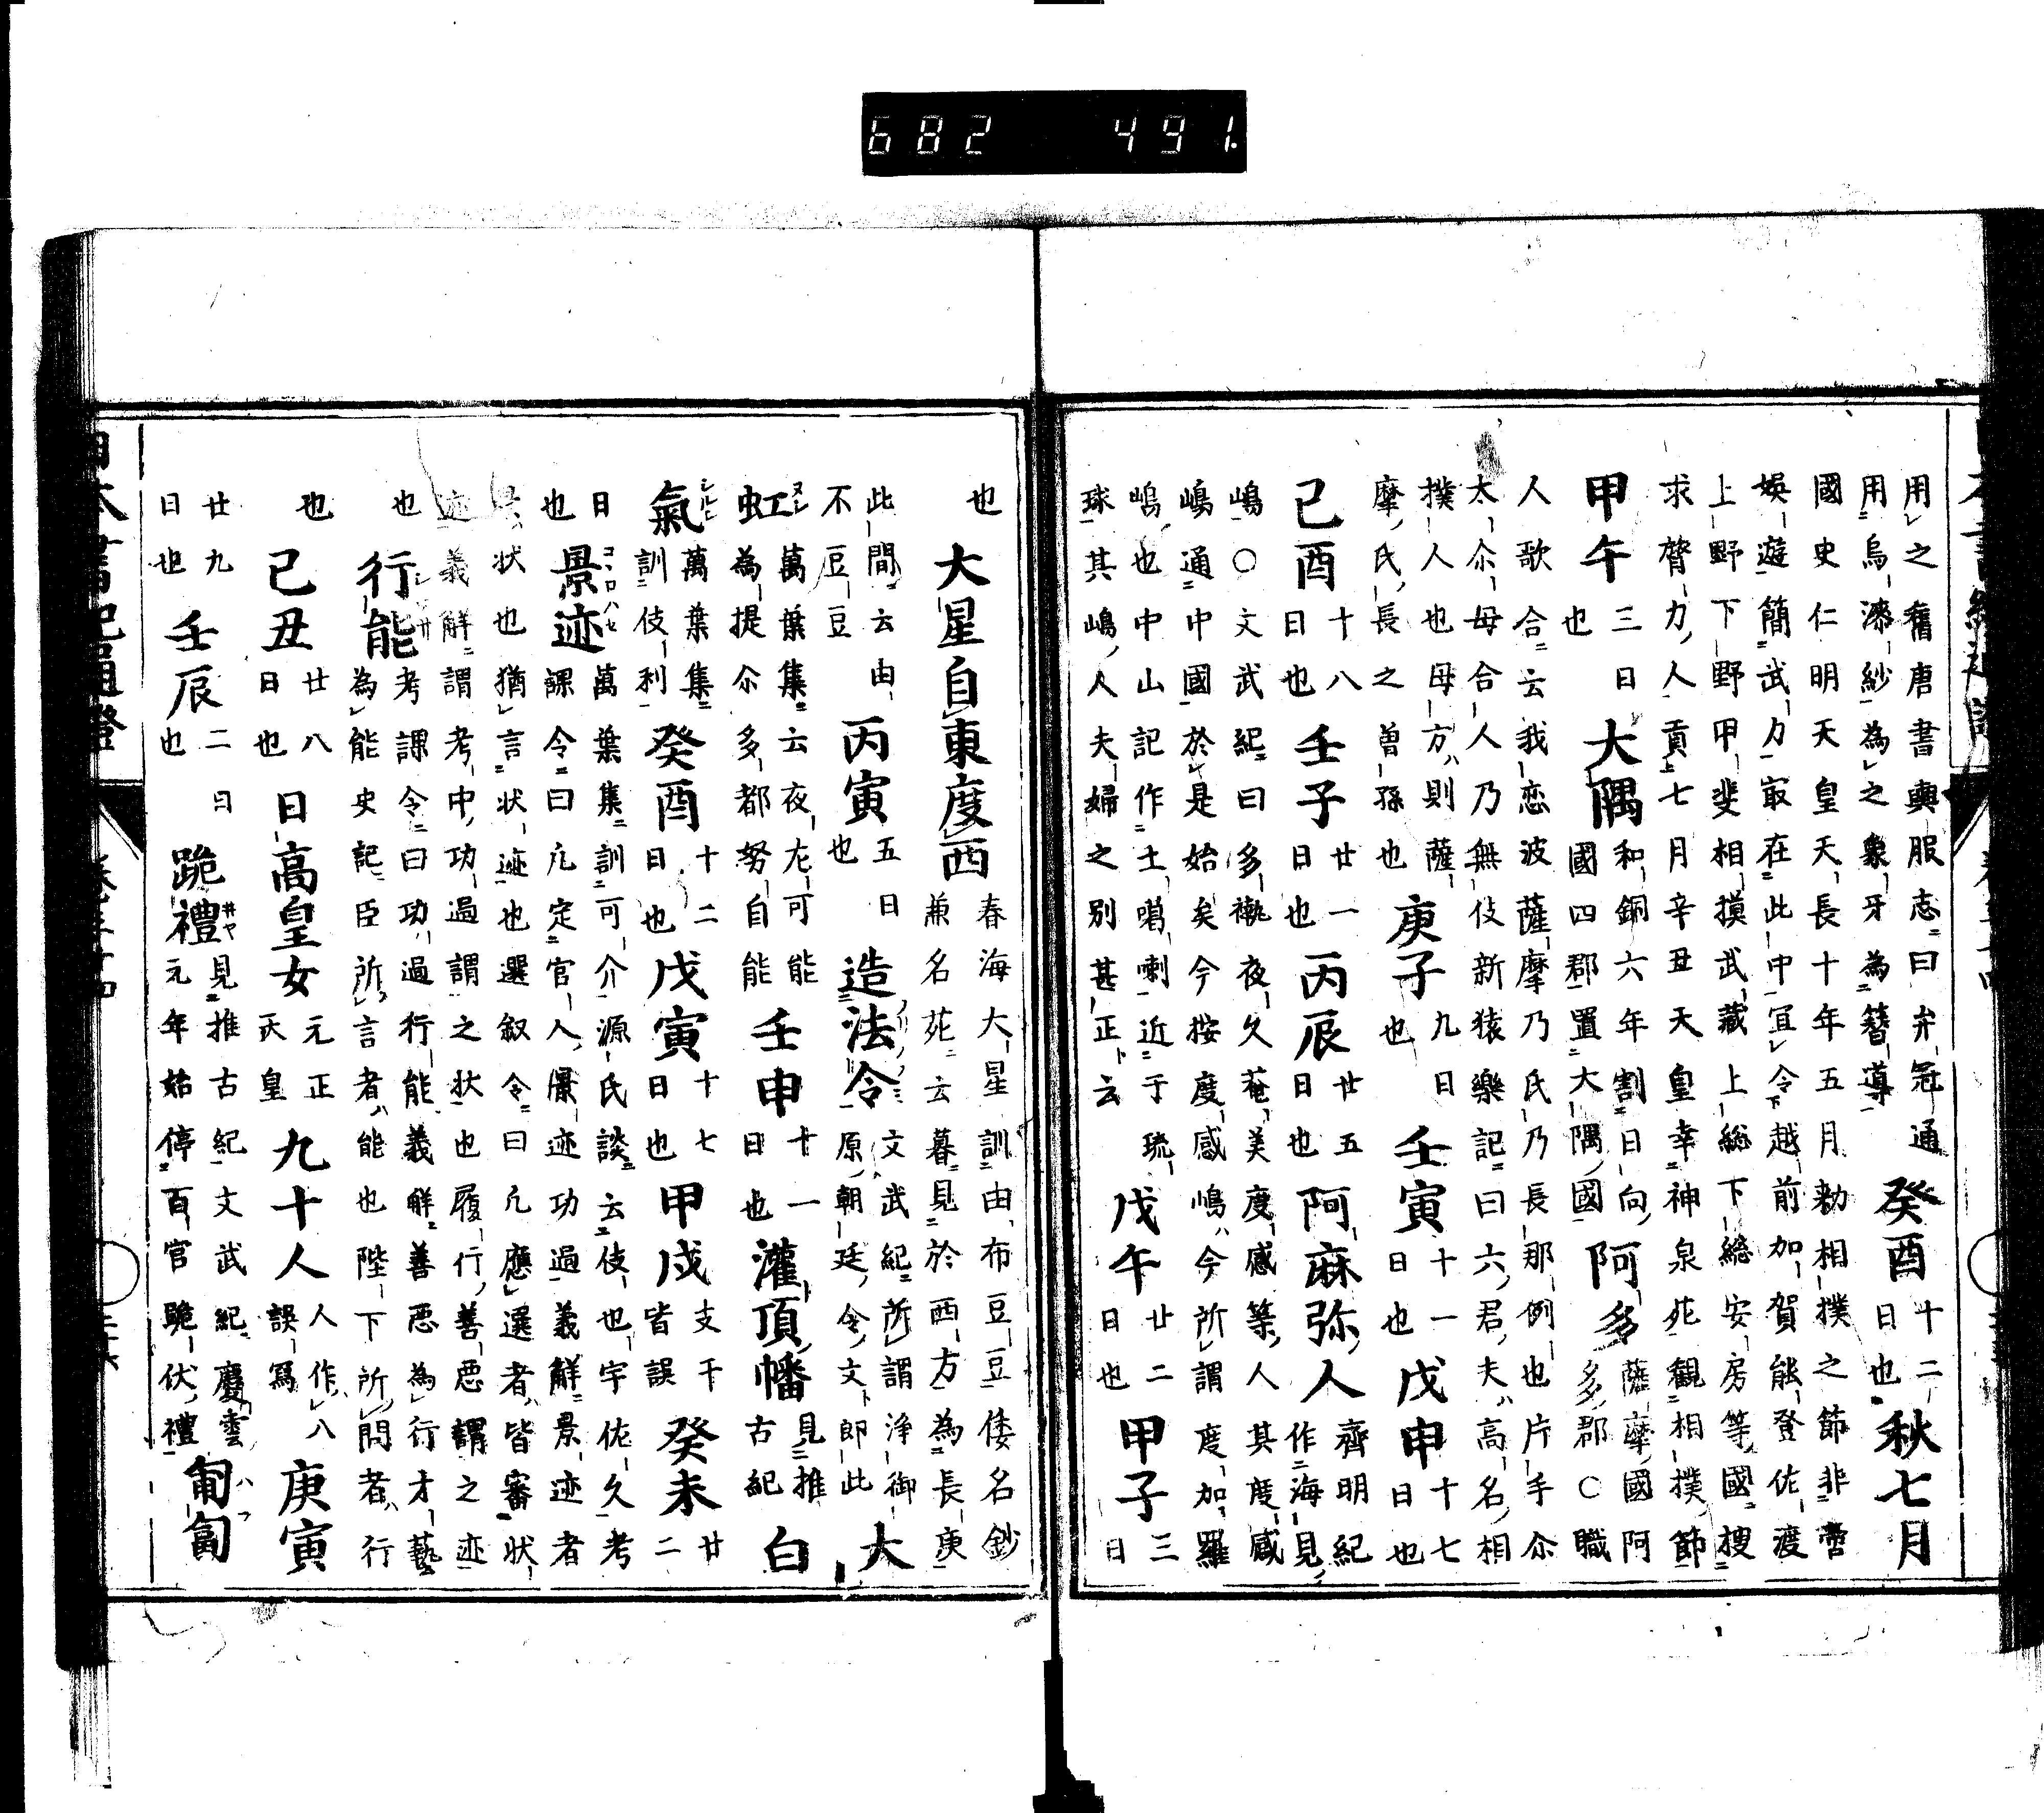 682 491.
用之舊唐書輿服志曰弁冠通
用烏漆紗為之象牙為簪導
癸酉
十二
日也
秋七月
國史仁明天皇天長十年五月勅相撲之節非啻
娯遊簡武力取在此中宜令越前加賀能登佐渡
上野下野甲斐相摸武藏上総下総安房等國搜
求膂力人貢上七月辛丑天皇幸神泉苑観相撲節
甲午
三日
也
大隅
和銅六年割日向
國四郡置大隅國
阿多
薩摩國阿
多郡〇職
人歌合云我恋波薩摩乃氏乃長那例也片手尒
太尒母合人乃無伎新猿樂記曰六君夫高名相
撲人也母方則薩
摩氏長之曽孫也
庚子
九日
也
壬寅
十一
日也
戊申
十七
日也
己酉
十八
日也
壬子
廿一
日也
丙辰
廿五
日也
阿麻弥人
齊明紀
作海見
嶋〇文武紀曰多褹夜久菴美度感等人其度感
嶋通中國於是始矣今按度感嶋今所謂度加羅
嶋也中山記作土噶喇近于琉
球其嶋人夫婦之別甚正云
戊午
廿二
日也
甲子
三
日
也
大星自東度西
春海大星訓由布豆豆倭名鈔
兼名苑云暮見於西方為長庚
此間云由
不豆豆
丙寅
五日
也
造法令
文武紀所謂浄御
原朝廷令文郎此
大
虹
萬葉集云夜左可能
為提尒多都努自能
壬申
十一
日也
灌頂幡
見推
古紀
白
氣
萬葉集
訓伎利
癸酉
十二
日也
戊寅
十七
日也
甲戌
支干
皆誤
癸未
廿
二
日
也
景迹
萬葉集訓可介源氏談云伎也宇佐久考
課令曰凡定官人景迹功過義解景迹者
景状也猶言状迹也選叙令曰凡應選者皆審状
迹義解謂考中功過謂之状也履行善悪謂之迹
也
行能
考課令曰功過行能義解善悪為行才藝
為能史記臣所言者能也陛下所問者行
也
己丑
廿八
日也
日高皇女
元正
天皇
九十人
人作八
誤寫
庚寅
廿九
日也
壬辰
二日
也
跪禮
見推古紀文武紀慶雲
元年始停百官跪伏禮
匍匐
日本書紀通證